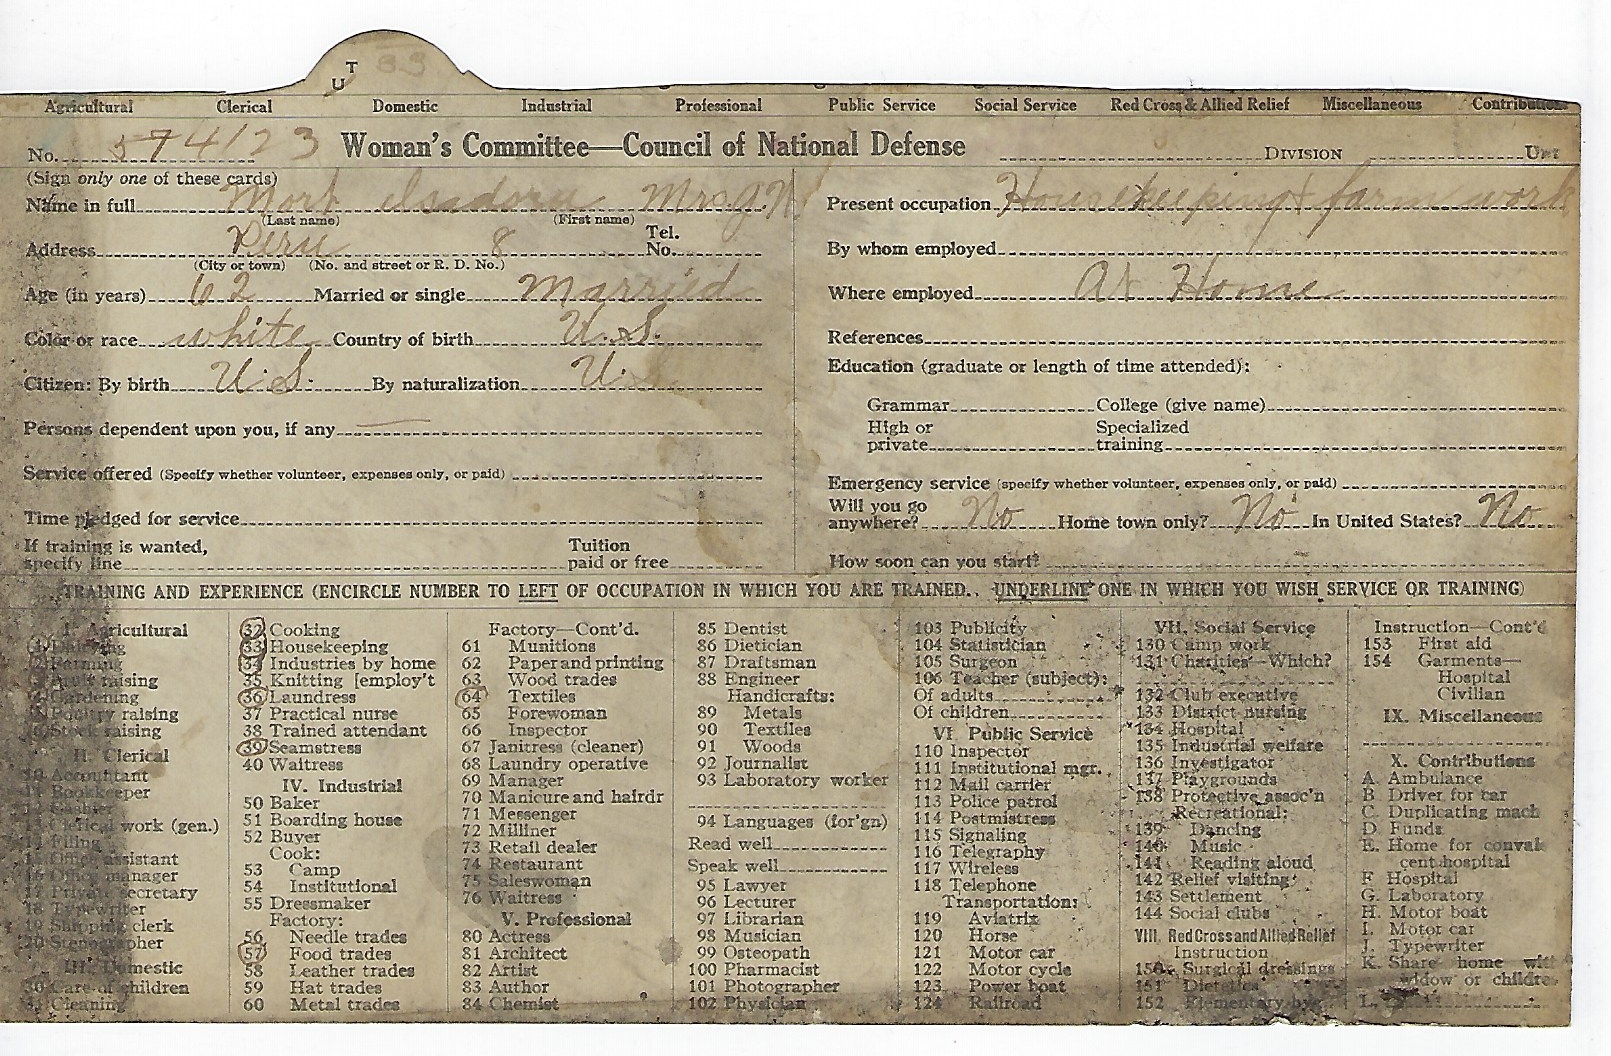 T 83
U
Agricultural Clerical Domestic Industrial Professional Public Service Social Service Red Cross & Allied Relief Miscellaneous Contributions
No. 574123 Woman's Committee—Council of National Defense DIVISION
(Sign only one of these cards)
Name in full Isadora Mrs. J. N.
(Last name) (First name)
Address Peru 8 Tel. No.
(City or town) (No. and street or R. D. No.)
Age (in years) 62 Married or single Married
Color or race white Country of birth U.S.
Citizen: By birth U.S. By naturalization U.
Persons dependent upon you, if any —
Service offered (Specify whether volunteer, expenses only, or paid)
Time pledged for service
If training is wanted, specify line Tuition paid or free
Present occupation Housekeeping & farm work
By whom employed
Where employed At Home
References
Education (graduate or length of time attended):
Grammar College (give name)
High or private Specialized training
Emergency service (specify whether volunteer, expenses only, or paid)
Will you go anywhere? No Home town only? No In United States? No
How soon can you start?
TRAINING AND EXPERIENCE (ENCIRCLE NUMBER TO LEFT OF OCCUPATION IN WHICH YOU ARE TRAINED. UNDERLINE ONE IN WHICH YOU WISH SERVICE OR TRAINING)
I. Agricultural
1 Dairying
2 Farming
3 Fruit raising
4 Gardening
5 Poultry raising
6 Stock raising
II. Clerical
10 Accountant
11 Bookkeeper
12 Cashier
13 Clerical work (gen.)
14 Filing
15 Office assistant
16 Office manager
17 Private secretary
18 Typewriter
19 Shipping clerk
20 Stenographer
III. Domestic
30 Care of children
31 Cleaning
32 Cooking
33 Housekeeping
34 Industries by home
35 Knitting [employ't
36 Laundress
37 Practical nurse
38 Trained attendant
39 Seamstress
40 Waitress
IV. Industrial
50 Baker
51 Boarding house
52 Buyer
Cook:
53 Camp
54 Institutional
55 Dressmaker
Factory:
56 Needle trades
57 Food trades
58 Leather trades
59 Hat trades
60 Metal trades
Factory—Cont'd.
61 Munitions
62 Paper and printing
63 Wood trades
64 Textiles
65 Forewoman
66 Inspector
67 Janitress (cleaner)
68 Laundry operative
69 Manager
70 Manicure and hairdr
71 Messenger
72 Milliner
73 Retail dealer
74 Restaurant
75 Saleswoman
76 Waitress
V. Professional
80 Actress
81 Architect
82 Artist
83 Author
84 Chemist
85 Dentist
86 Dietician
87 Draftsman
88 Engineer
Handicrafts:
89 Metals
90 Textiles
91 Woods
92 Journalist
93 Laboratory worker
94 Languages (for'gn)
Read well
Speak well
95 Lawyer
96 Lecturer
97 Librarian
98 Musician
99 Osteopath
100 Pharmacist
101 Photographer
102 Physician
103 Publicity
104 Statistician
105 Surgeon
106 Teacher (subject):
Of adults
Of children
VI. Public Service
110 Inspector
111 Institutional mgr.
112 Mail carrier
113 Police patrol
114 Postmistress
115 Signaling
116 Telegraphy
117 Wireless
118 Telephone
Transportation:
119 Aviatrix
120 Horse
121 Motor car
122 Motor cycle
123 Power boat
124 Railroad
VII. Social Service
130 Camp work
131 Charities—Which?
132 Club executive
133 District nursing
134 Hospital
135 Industrial welfare
136 Investigator
137 Playgrounds
138 Protective assoc'n
Recreational:
139 Dancing
140 Music
141 Reading aloud
142 Relief visiting
143 Settlement
144 Social clubs
VIII. Red Cross and Allied Relief
Instruction
150 Surgical dressings
151 Dietetics
152 Elementary hyg.
Instruction—Cont'd
153 First aid
154 Garments—
Hospital
Civilian
IX. Miscellaneous
X. Contributions
A. Ambulance
B Driver for car
C. Duplicating mach
D. Funds
E. Home for conval
cent hospital
F Hospital
G. Laboratory
H. Motor boat
I. Motor car
J. Typewriter
K. Share home with
widow or children
L.